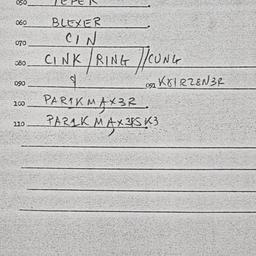 050 TEPER
060 BLEXER
070 CIN
080 CINK/RING//CUNG
090 051 KXIRZEN3R
100 PAR1KMAX3R
110 PAR1KMAX3RSK3